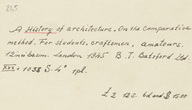 A History of architecture. On the comparative
method. For students, craftsmen, amateurs.
London 1945 B.T. Batsford Ltd.
XVI + 1033 S. 4° 1 pl.
£ 2 12 6